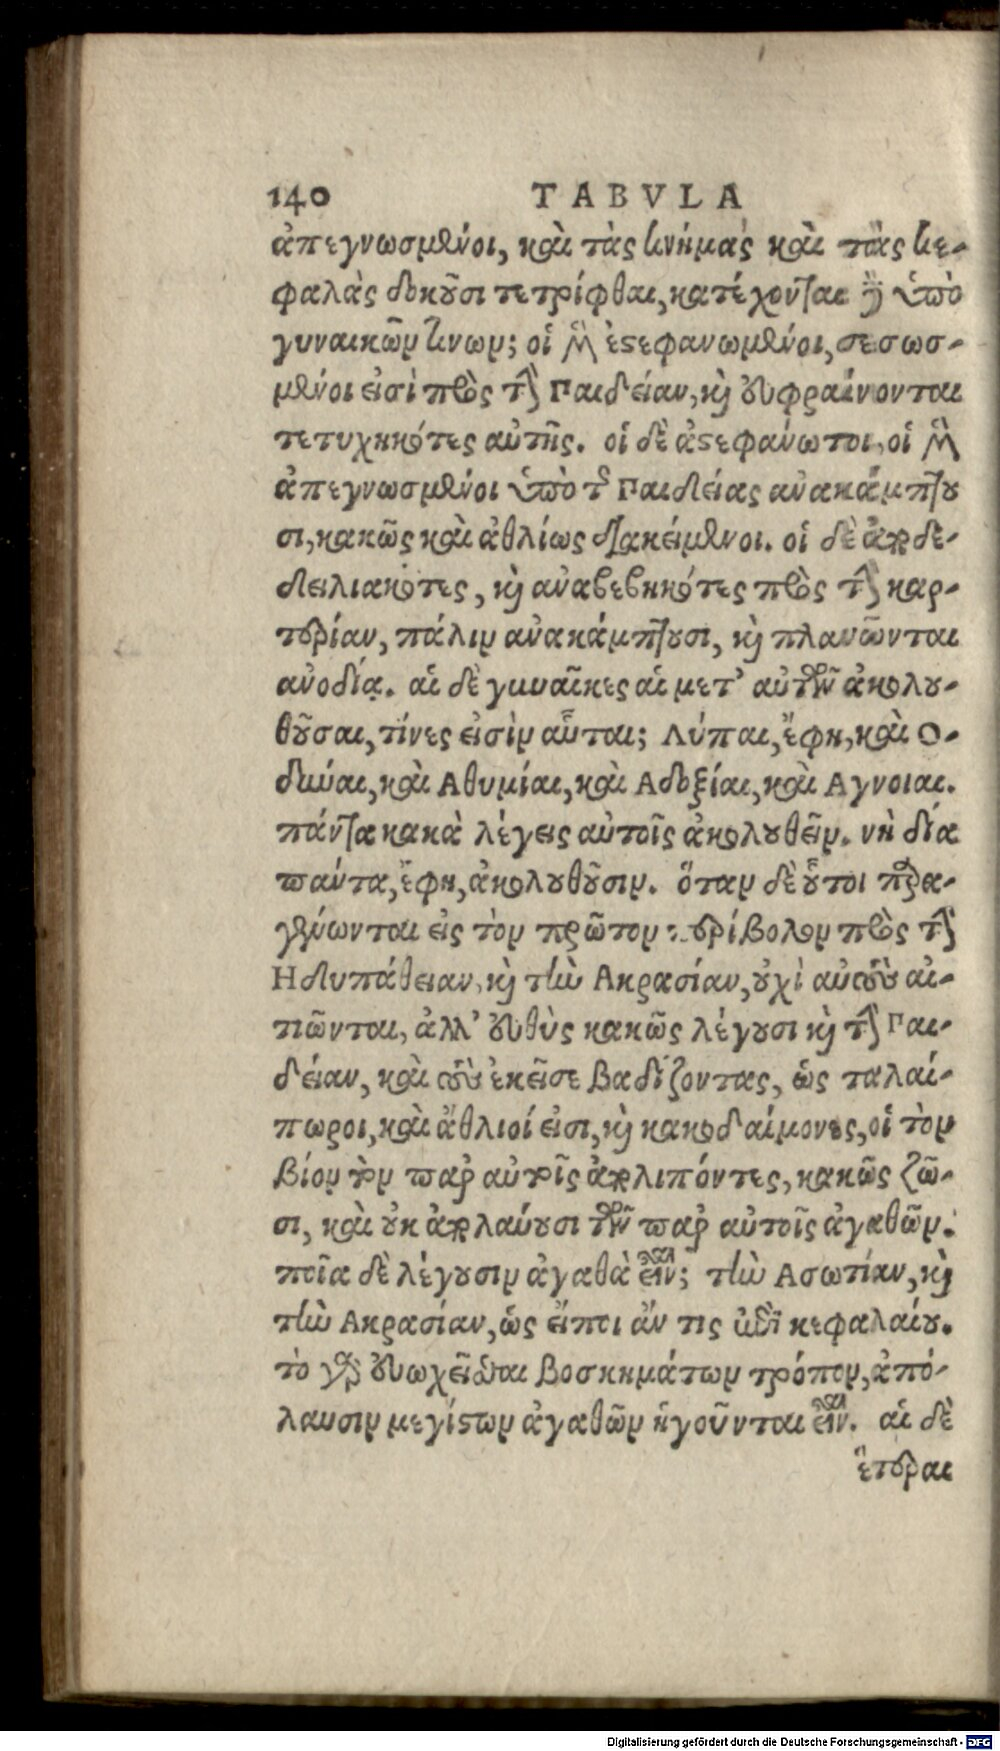 140 TABVLA
ἀπεγνωσμένοι, καὶ τὰς κνήμας καὶ τὰς κε-
φαλὰς δοκοῦσι τετρίφθαι, κατέχονται δὲ ὑπὸ
γυναικῶν τινων; οἱ μὲν ἐστεφανωμένοι, σεσωσ-
μένοι εἰσὶ πρὸς τὴν Παιδείαν, καὶ εὐφραίνονται
τετυχηκότες αὐτῆς. οἱ δὲ ἀστεφάνωτοι, οἱ μὲν
ἀπεγνωσμένοι ὑπὸ τῆς Παιδείας ἀνακάμπτου
σι, κακῶς καὶ ἀθλίως διακείμενοι. οἱ δὲ ἀποδε-
δειλιακότες, καὶ ἀναβεβηκότες πρὸς τὴν καρ-
τερίαν, πάλιν ἀνακάμπτουσι, καὶ πλανῶνται
ἀνοδίᾳ. αἱ δὲ γυναῖκες αἱ μετ' αὐτῶν ἀκολου-
θοῦσαι, τίνες εἰσὶν αὗται; Λύπαι, ἔφη, καὶ Ο-
δύναι, καὶ Αθυμίαι, καὶ Αδοξίαι, καὶ Αγνοιαι.
πάντα κακὰ λέγεις αὐτοῖς ἀκολουθεῖν. νὴ δία
πάντα, ἔφη, ἀκολουθοῦσιν. ὅταν δὲ οὗτοι παρα-
γένωνται εἰς τὸν πρῶτον περίβολον πρὸς τὴν
Ηδυπάθειαν, καὶ τὴν Ακρασίαν, οὐχὶ αὑτοὺς αἰ-
τιῶνται, ἀλλ' εὐθὺς κακῶς λέγουσι καὶ τὴν Παι-
δείαν, καὶ τοὺς ἐκεῖσε βαδίζοντας, ὡς ταλαί-
πωροι, καὶ ἄθλιοί εἰσι, καὶ κακοδαίμονες, οἱ τὸν
βίον τὸν παρ' αὐτοῖς ἀπολιπόντες, κακῶς ζῶ-
σι, καὶ οὐκ ἀπολαύουσι τῶν παρ' αὐτοῖς ἀγαθῶν.
ποῖα δὲ λέγουσιν ἀγαθὰ εἶναι; τὴν Ασωτίαν, καὶ
τὴν Ακρασίαν, ὡς εἴποι ἄν τις ἐπὶ κεφαλαίου.
τὸ γὰρ εὐωχεῖσθαι βοσκημάτων τρόπον, ἀπό-
λαυσιν μεγίστων ἀγαθῶν ἡγοῦνται εἶναι. αἱ δὲ
ἕτεραι
Digitalisierung gefördert durch die Deutsche Forschungsgemeinschaft - DFG